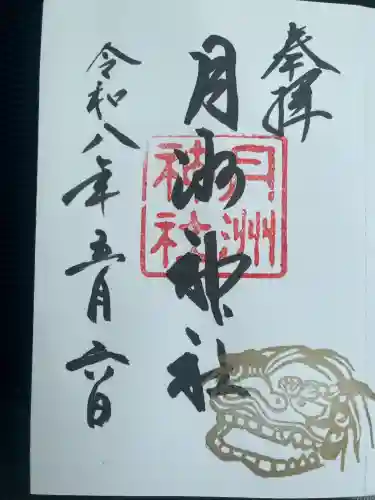 奉拝
月洲神社
月洲
神社
令和八年五月六日